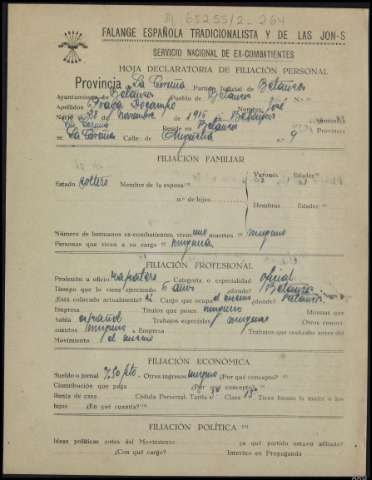 M 65255/2-264
FALANGE ESPAÑOLA TRADICIONALISTA Y DE LAS JON-S
SERVICIO NACIONAL DE EX-COMBATIENTES
HOJA DECLARATORIA DE FILIACIÓN PERSONAL
Provincia La Coruña Partido Judicial de Betanzos
Ayuntamiento de Betanzos Pueblo de Betanzos
Apellidos Fraga Docampo Nombre José
Nació 28 de noviembre de 1916 en Betanzos
La Coruña Reside en Betanzos Provincia
de La Coruña Calle de 9
FILIACIÓN FAMILIAR
Varones Edades
Estado soltero Nombre de la esposa
n.º de hijos
Hembras Edades
Número de hermanos ex-combatientes, vivos uno muertos ninguno
Personas que viven a su cargo ninguna
FILIACIÓN PROFESIONAL
Profesión u oficio zapatero Categoría o especialidad oficial
Tiempo que lo viene ejerciendo 6 años ¿dónde? Betanzos
¿Está colocado actualmente? si Cargo que ocupa el mismo ¿dónde? Betanzos
Empresa Títulos que posee ninguno Idiomas que
habla español Trabajos especiales ninguno Otros conoci-
mientos ninguno Empresa Trabajos que realizaba antes del
Movimiento el mismo
FILIACIÓN ECONÓMICA
Sueldo o jornal 7,50 pts. Otros ingresos ninguno ¿Por qué concepto?
Contribución que paga ¿Por qué concepto?
Renta de casa Cédula Personal: Tarifa Clase 13ª Tiene bienes la madre o los
hijos ¿En qué cuantía?
FILIACIÓN POLÍTICA
Ideas políticas antes del Movimiento ¿a qué partido estuvo afiliado?
¿Con qué cargo? Intervino en Propaganda